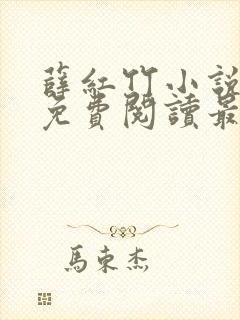 薛紅竹小說
免費閱讀最
馬東杰